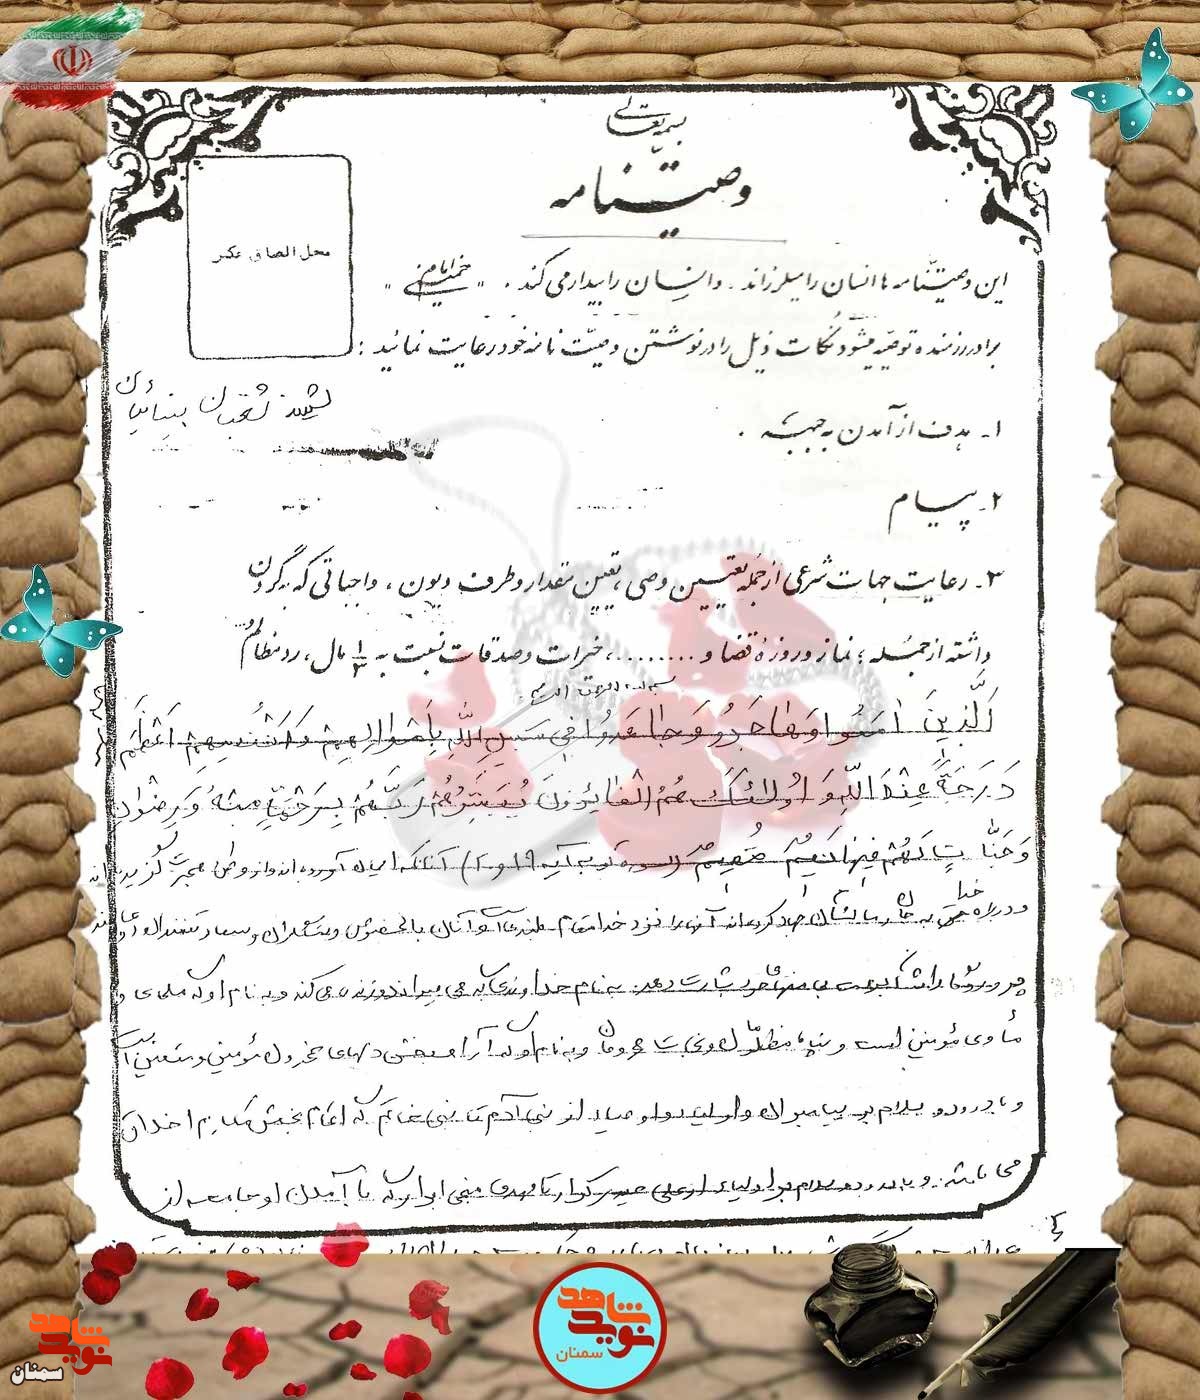 بسمه تعالی
وصیتنامه
محل الصاق عکس
این وصیتنامه ها انسان را میلرزاند . و انسان را بیدار می کند . " امام خمینی "
برادر رزمنده توصیه میشود نکات ذیل را در نوشتن وصیت نامه خود رعایت نمائید :
شهید
۱- هدف از آمدن به جبهه .
۲- پیام
۳- رعایت جهات شرعی از جمله تعیین وصی ، تعیین مقدار و طرف دیون ، واجباتی که به گردن
داشته از جمله : نماز و روزه قضا و ........ ، خیرات و صدقات نسبت به ۱/۳ مال ، رد مظالم
بسم الله الرحمن الرحیم
الَّذِینَ امَنُوا وَهاجَرُو وَجاهَدُوا فی سَبیلِ اللّهِ بِاَمْوالِهِمْ وَاَنْفُسِهِمْ اَعْظَمُ
دَرَجَةً عِنْدَ اللّهِ وَ اُولائکَ هُمُ الْفائِزونَ یُبَشِّرُهُمْ رَبَّهُمْ بِرَحْمَةٍ مِنْهُ وَرِضْوانٍ
وَجَنّاتٍ لَهُمْ فیها نَعیمٌ مُقیمٌ (سوره توبه آیه ۱۹ و ۲۰) آنانکه ایمان آورده اند و از وطن هجرت گزیده اند
و در راه خدا به مال و جانشان جهاد کرده اند آنها را نزد خدا مقام بلندی است و آنان بالخصوص رستگاران و سعادتمندان
پروردگار به رحمت بی منتهای خود بشارت دهد به نام خداوندی که می میراند و زنده می کند و به نام او که ملجای و
مأوی مؤمنین است و پناه مظلومان و نجات محرومان و به نام او که آرامبخش دلهای مؤمنین و متقین است
و با درود و سلام بر پیامبران و اولیاء و اوصیاء از نبی آدم تا نبی خاتم که اتمام بخش مکارم اخلاق
می باشد و با درود و سلام بر اولیاء از علی حیدر کرار تا مهدی منجی ابرار که با آمدن او جامعه از
شاهد
نوید
سمنان
شاهد
نوید
سمنان